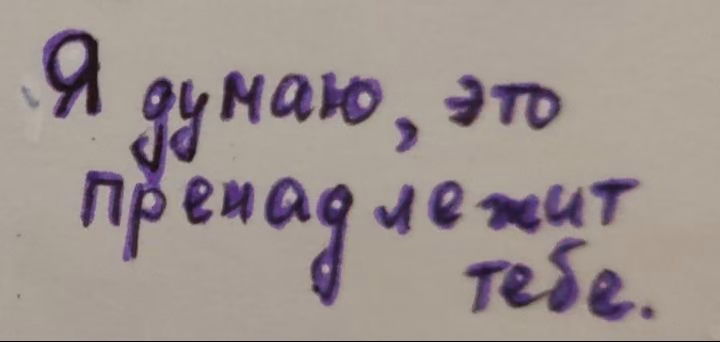 Я думаю, это
пренадлежит
тебе.